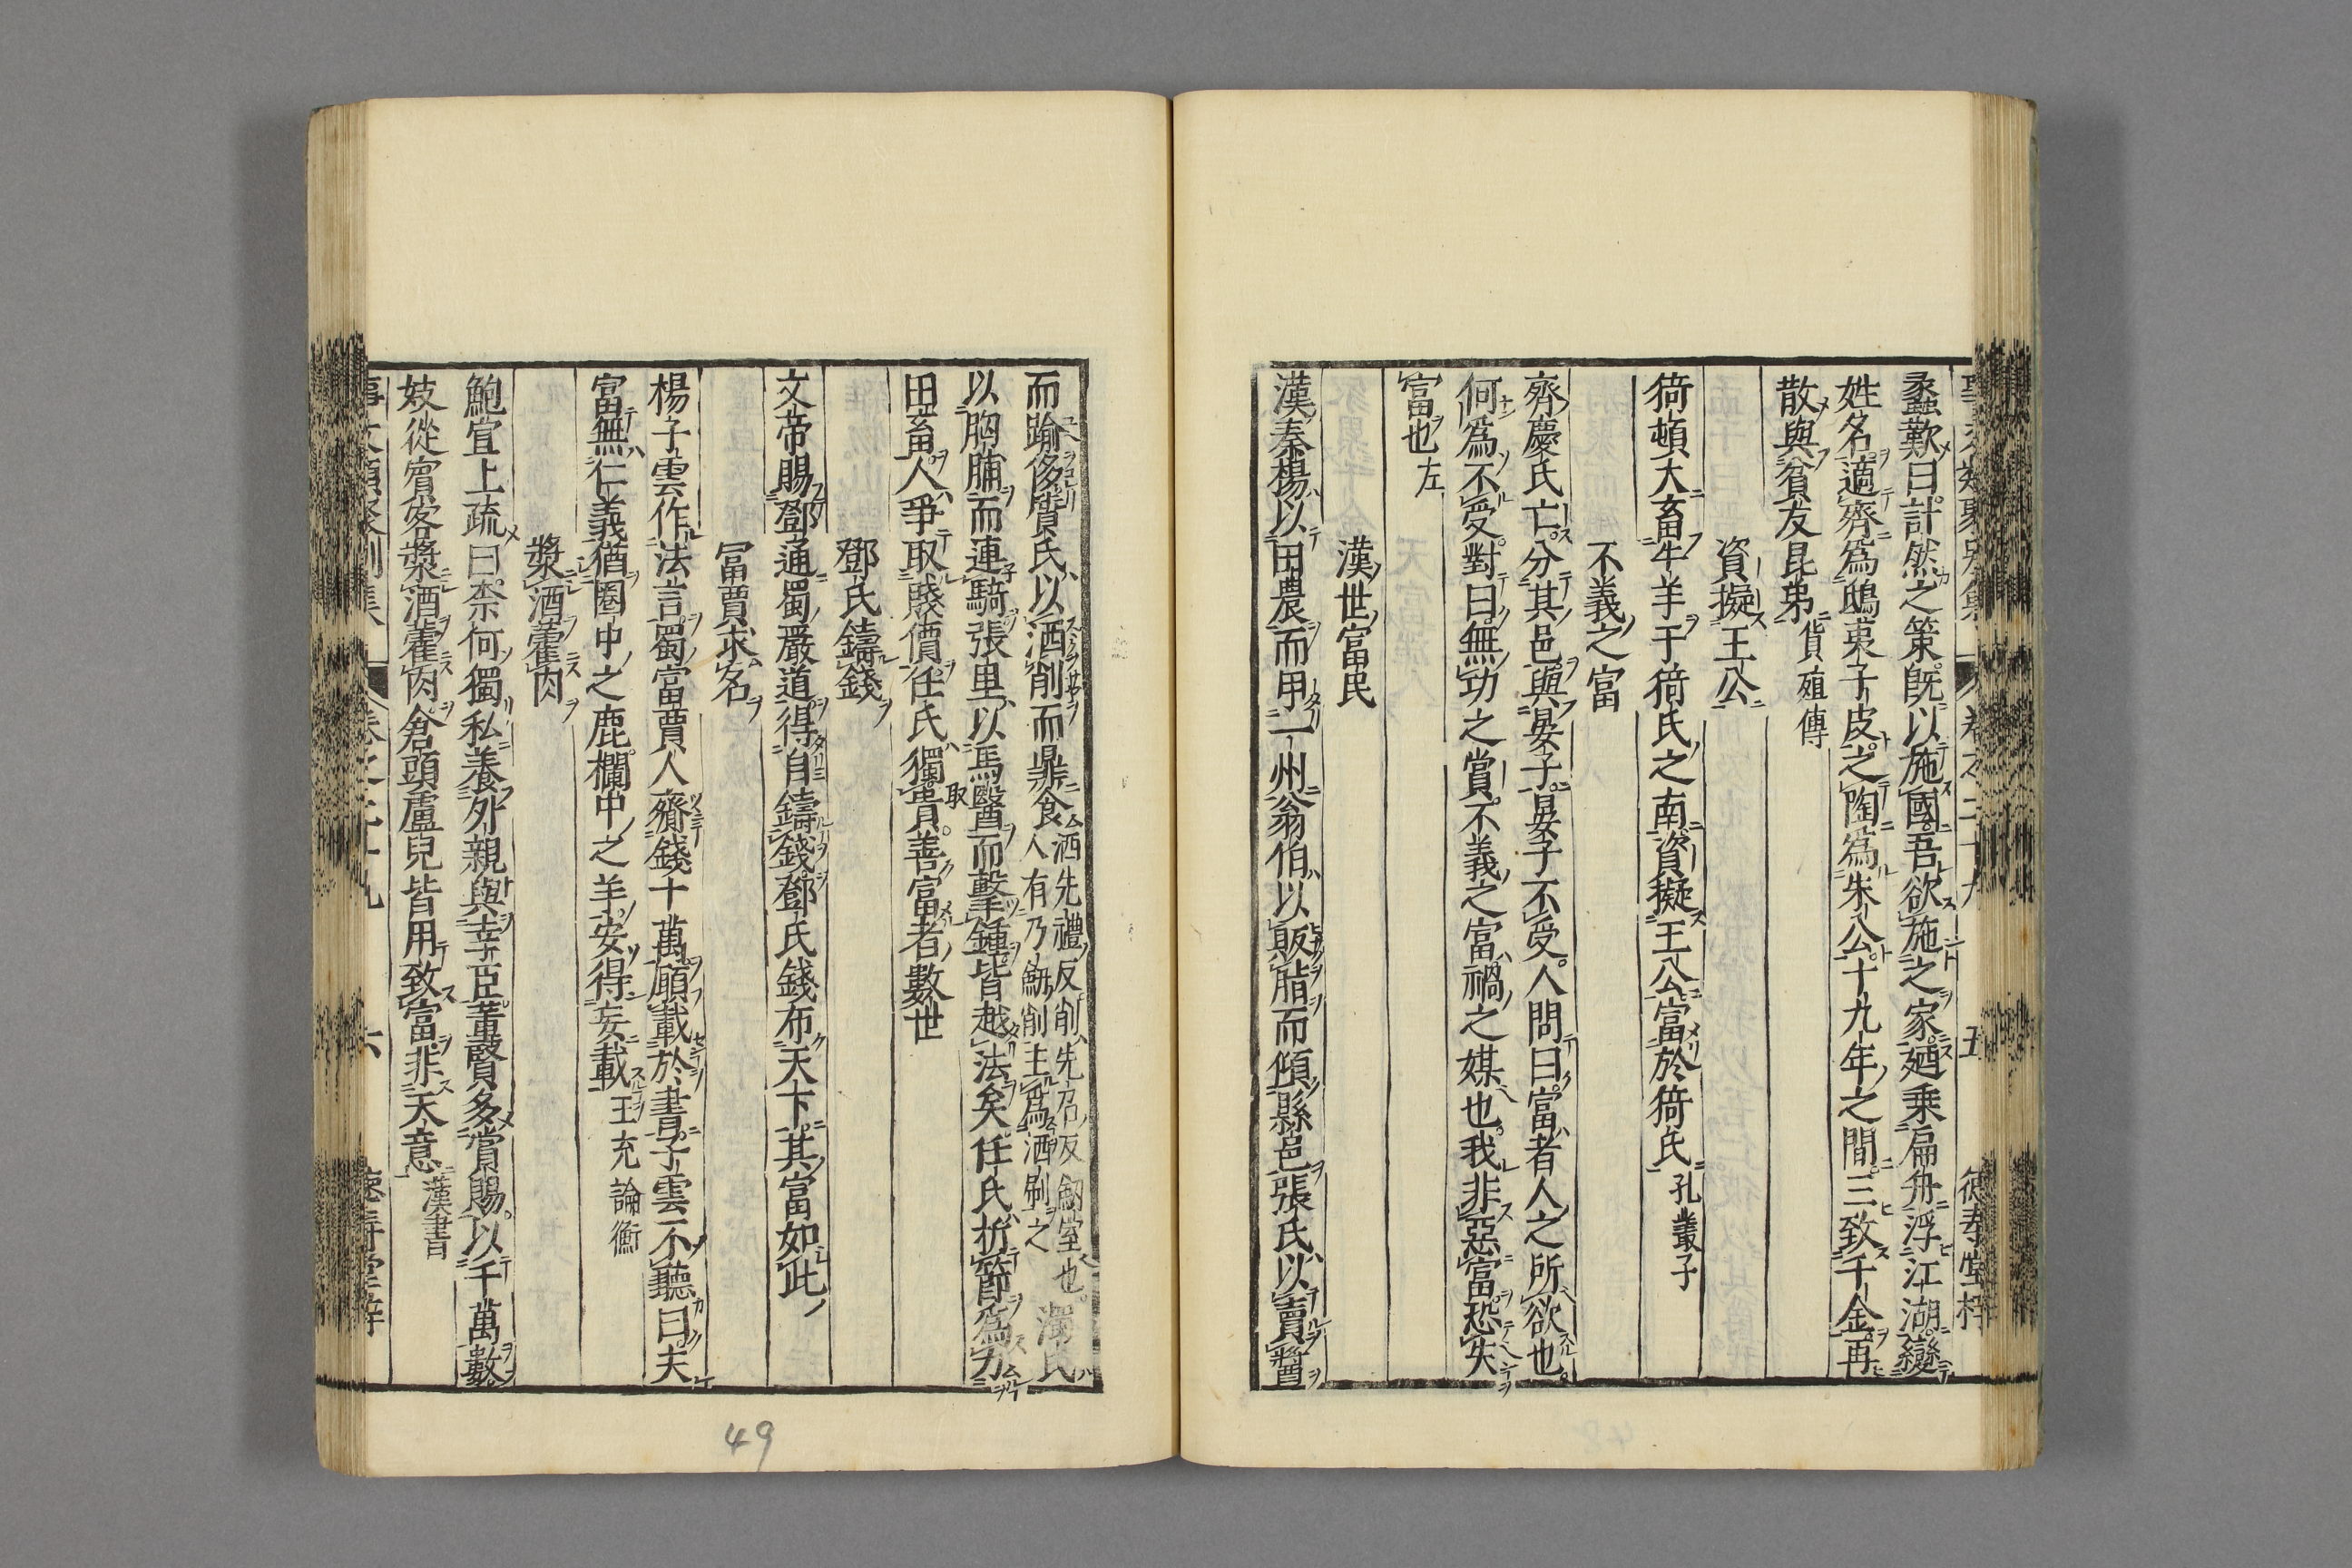 蠡歎曰計然之策既以施國吾欲施之家廼乘扁舟浮江湖變
姓名適齊爲鴟夷子皮之陶爲朱公十九年之間三致千金再
散與貧友昆弟貨殖傳
資擬王公
猗頓大畜牛羊于猗氏之南資擬王公富於猗氏孔叢子
不義之富
齊慶氏亡分其邑與晏子晏子不受人問曰富者人之所欲也
何爲不受對曰無功之賞不義之富禍之媒也我非惡富恐失
富也左
漢世富民
漢秦楊以田農而甲一州翁伯以販脂而傾縣邑張氏以賣醬
而踰侈質氏以洒削而鼎食洒先禮反削先召反劒室也
人有乃劒削主爲洒刷之濁氏
以胸脯而連騎張里以馬醫而擊鍾皆越法矣任氏折節爲力
田畜人爭取賤價任氏獨取貴善富者數世
鄧氏鑄錢
文帝賜鄧通蜀嚴道得自鑄錢鄧氏錢布天下其富如此
富賈求名
楊子雲作法言蜀富賈人齎錢十萬願載於書子雲不聽曰夫
富無仁義猶圈中之鹿欄中之羊安得妄載王充論衡
漿酒藿肉
鮑宣上疏曰柰何獨私養外親與幸臣董賢多賞賜以千萬數
妓從賓客漿酒藿肉倉頭盧兒皆用致富非天意漢書
六
49